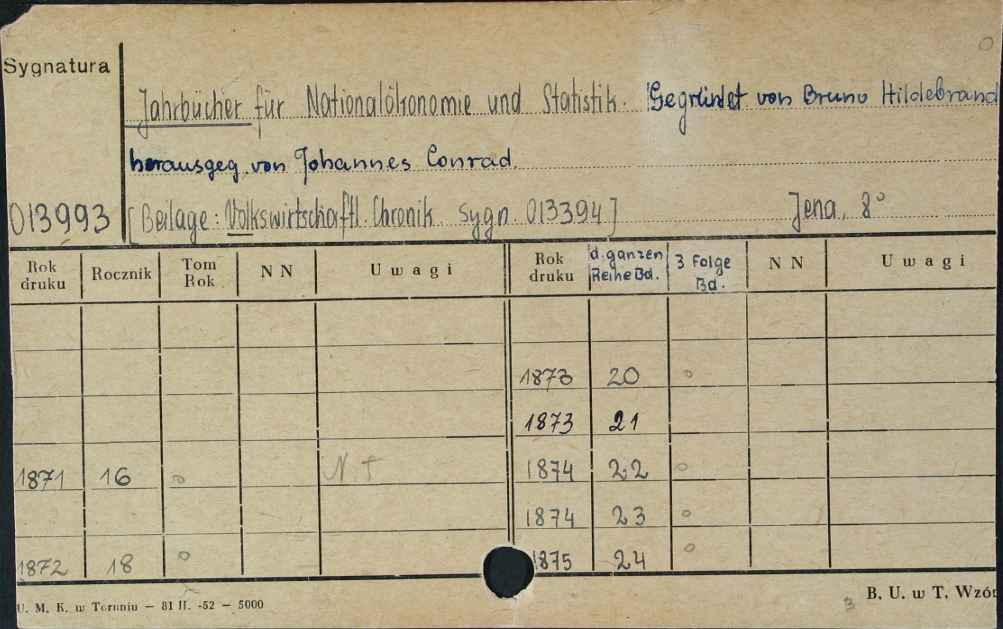 Sygnatura
Jahrbücher für Nationalökonomie und Statistik. Gegründet von Bruno Hildebrand
herausgeg. von Johannes Conrad.
013993 [Beilage: Volkswirtschaftl. Chronik. Sygn. 013394] Jena, 8°
Rok druku Rocznik Tom Rok NN Uwagi Rok druku d. ganzen Reihe Bd. 3 Folge Bd. NN Uwagi
1873 20 o
1873 21
1871 16 o N. t 1874 22 o
1874 23 o
1872 18 o 1875 24 o
U. M. K. w Toruniu — 81 II. -52 — 5000
B. U. w T. Wzór
3